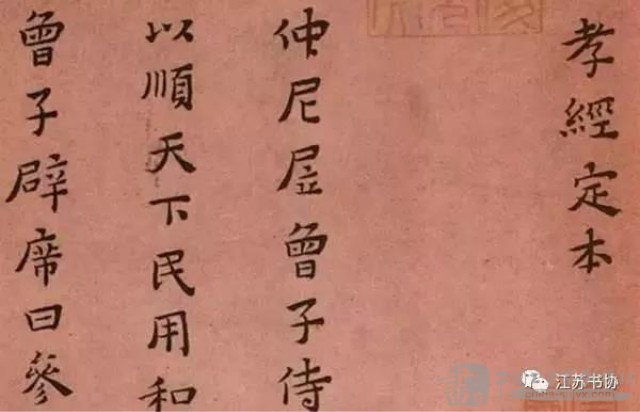 孝經定本
仲尼㞐曾子侍
以順天下民用和
曾子辟席曰參
江苏书协